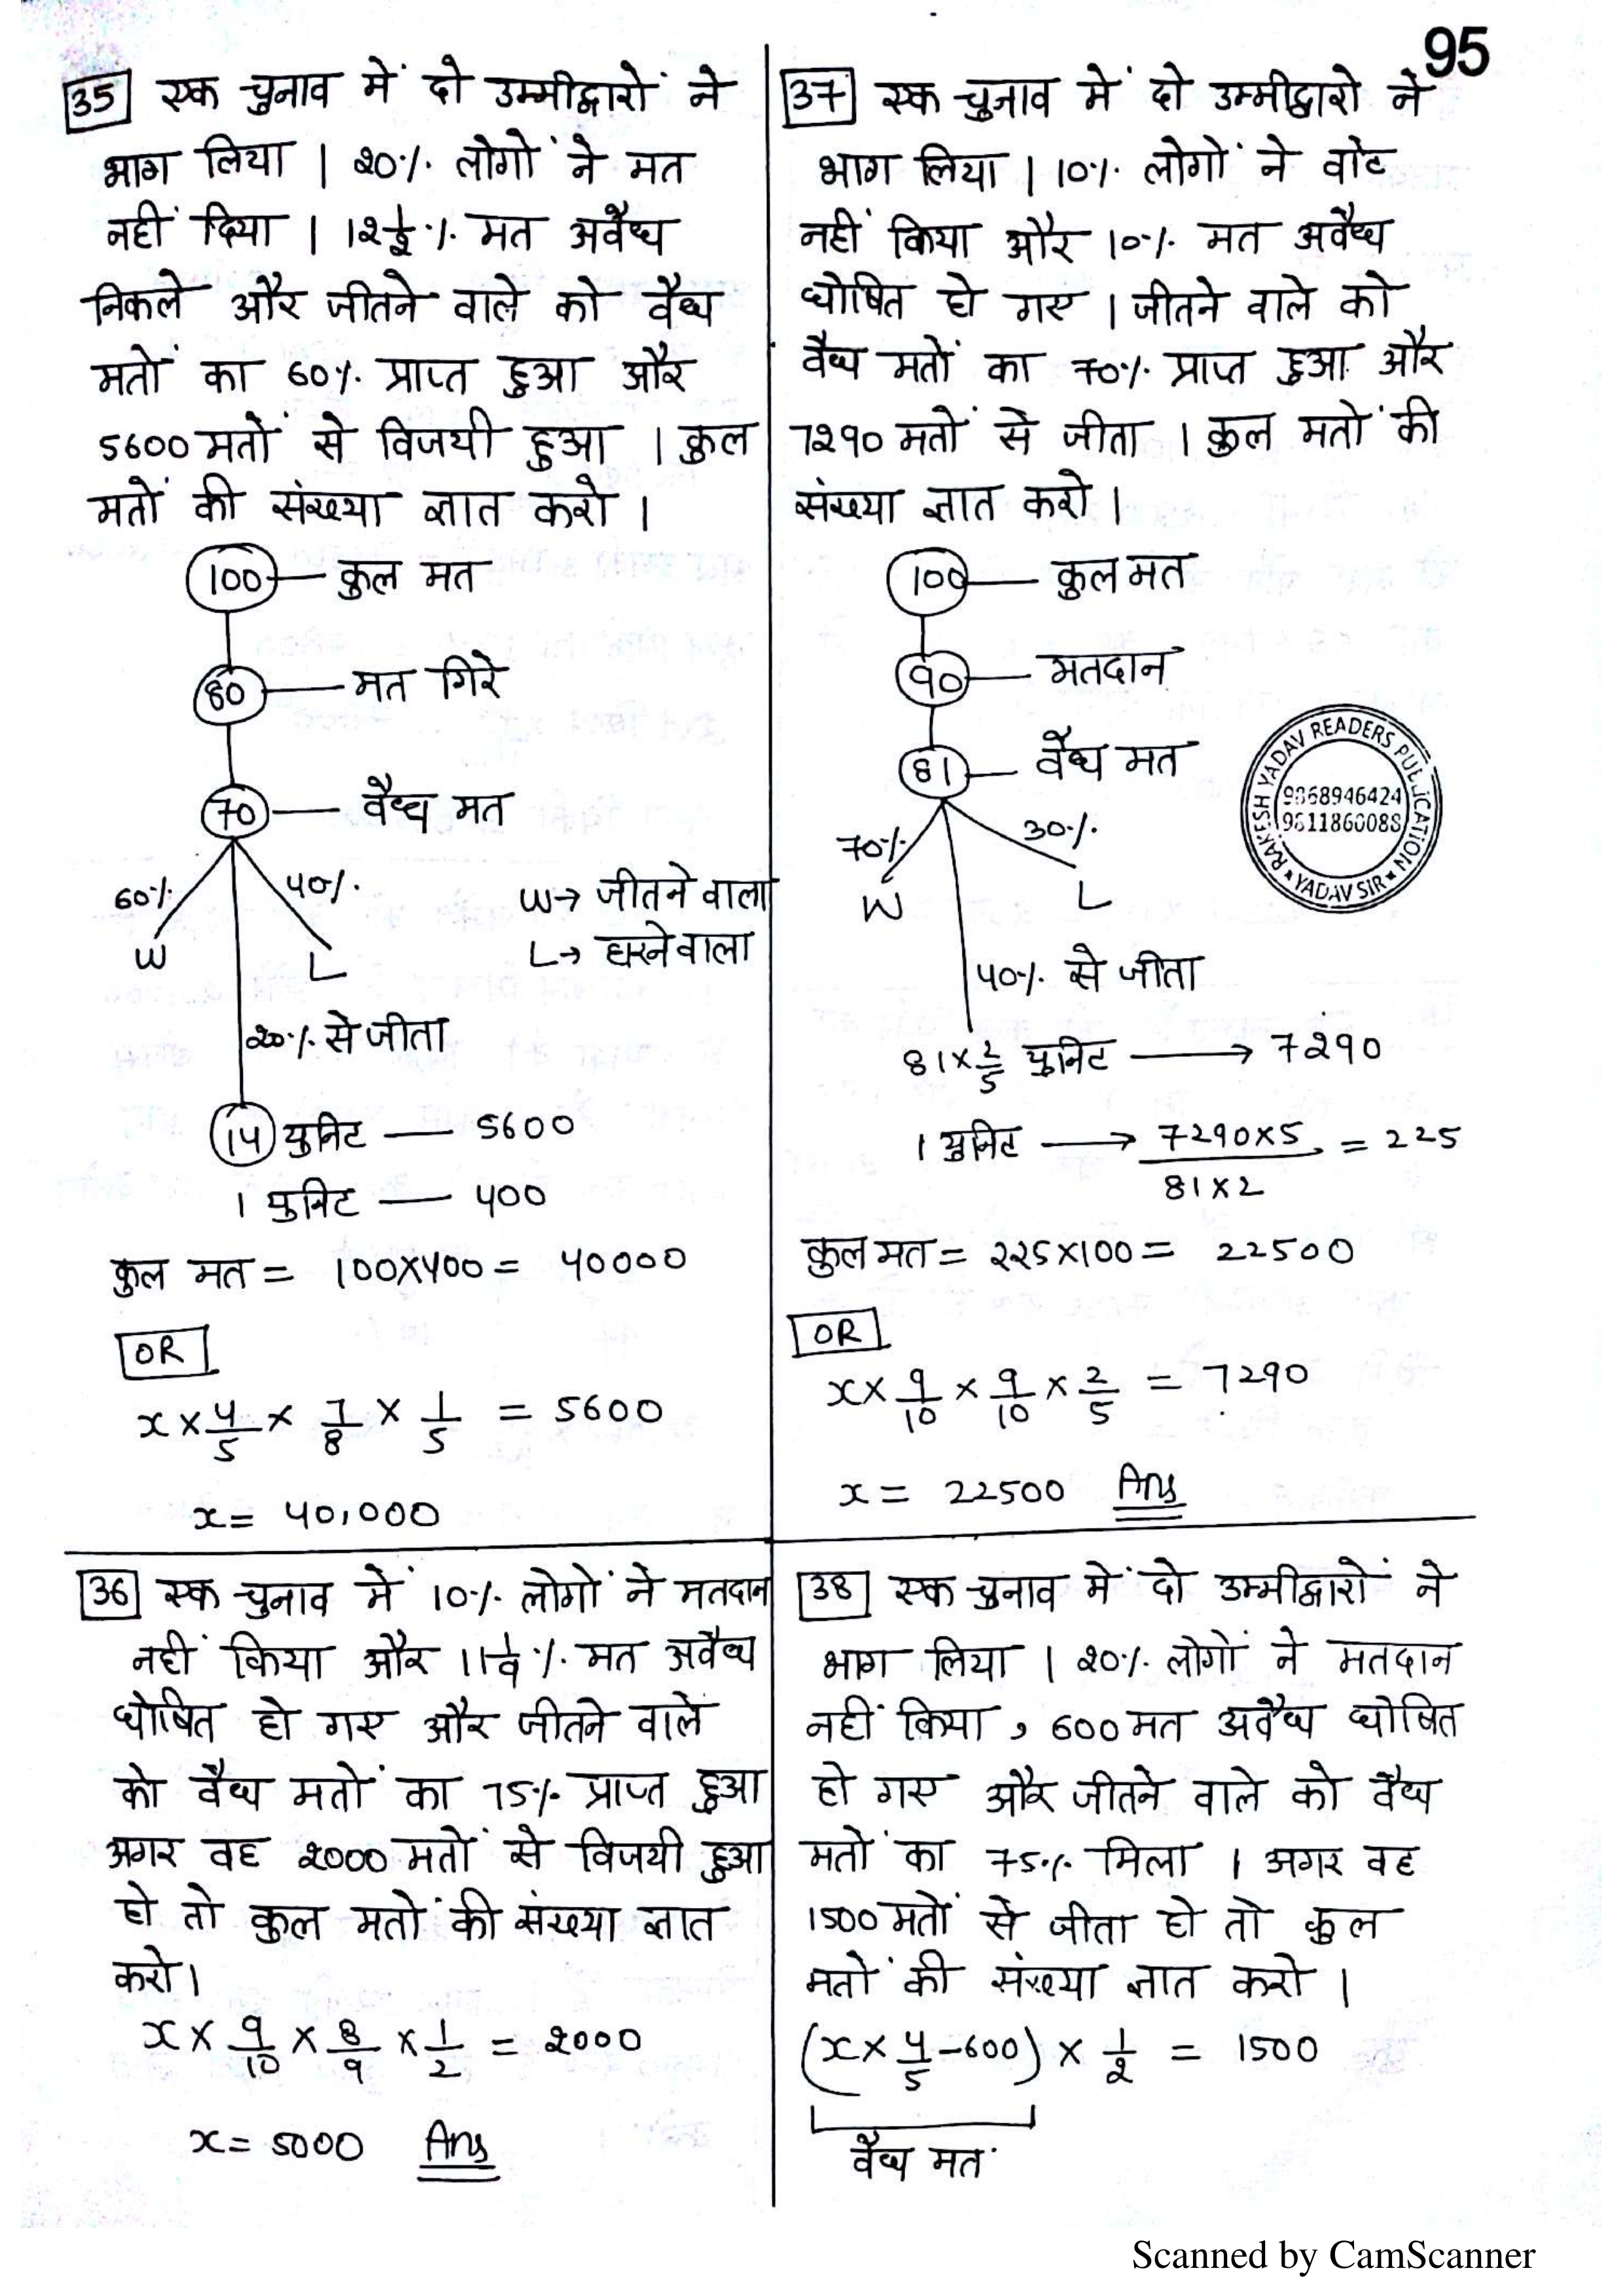 95
35 एक चुनाव में दो उम्मीद्वारों ने
भाग लिया । 20% लोगों ने मत
नहीं दिया । 12½% मत अवैध
निकले और जीतने वाले को वैध
मतों का 60% प्राप्त हुआ और
5600 मतों से विजयी हुआ । कुल
मतों की संख्या ज्ञात करो ।
100 — कुल मत
80 — मत गिरे
70 — वैध मत
60% 40%
W L
W→ जीतने वाला
L→ हारने वाला
20% से जीता
14 युनिट — 5600
1 युनिट — 400
कुल मत = 100×400 = 40000
OR
x × 4/5 × 7/8 × 1/5 = 5600
x = 40,000
36 एक चुनाव में 10% लोगों ने मतदान
नहीं किया और 11 1/9 % मत अवैध
घोषित हो गए और जीतने वाले
को वैध मतों का 75% प्राप्त हुआ
अगर वह 2000 मतों से विजयी हुआ
हो तो कुल मतों की संख्या ज्ञात
करो।
x × 9/10 × 8/9 × 1/2 = 2000
x = 5000 Ans
37 एक चुनाव में दो उम्मीद्वारो ने
भाग लिया । 10% लोगों ने वोट
नहीं किया और 10% मत अवैध
घोषित हो गए । जीतने वाले को
वैध मतों का 70% प्राप्त हुआ और
7290 मतों से जीता । कुल मतों की
संख्या ज्ञात करो ।
100 — कुल मत
90 — मतदान
81 — वैध मत
70% 30%
W L
40% से जीता
81×2/5 युनिट → 7290
1 युनिट → 7290×5/81×2 = 225
कुल मत = 225×100 = 22500
OR
x × 9/10 × 9/10 × 2/5 = 7290
x = 22500 Ans
RAKESH YADAV READERS PUBLICATION
9868946424
9811860088
YADAV SIR
38 एक चुनाव में दो उम्मीद्वारों ने
भाग लिया । 20% लोगों ने मतदान
नहीं किया , 600 मत अवैध घोषित
हो गए और जीतने वाले को वैध
मतों का 75% मिला । अगर वह
1500 मतों से जीता हो तो कुल
मतों की संख्या ज्ञात करो ।
(x × 4/5 – 600) × 1/2 = 1500
वैध मत
Scanned by CamScanner